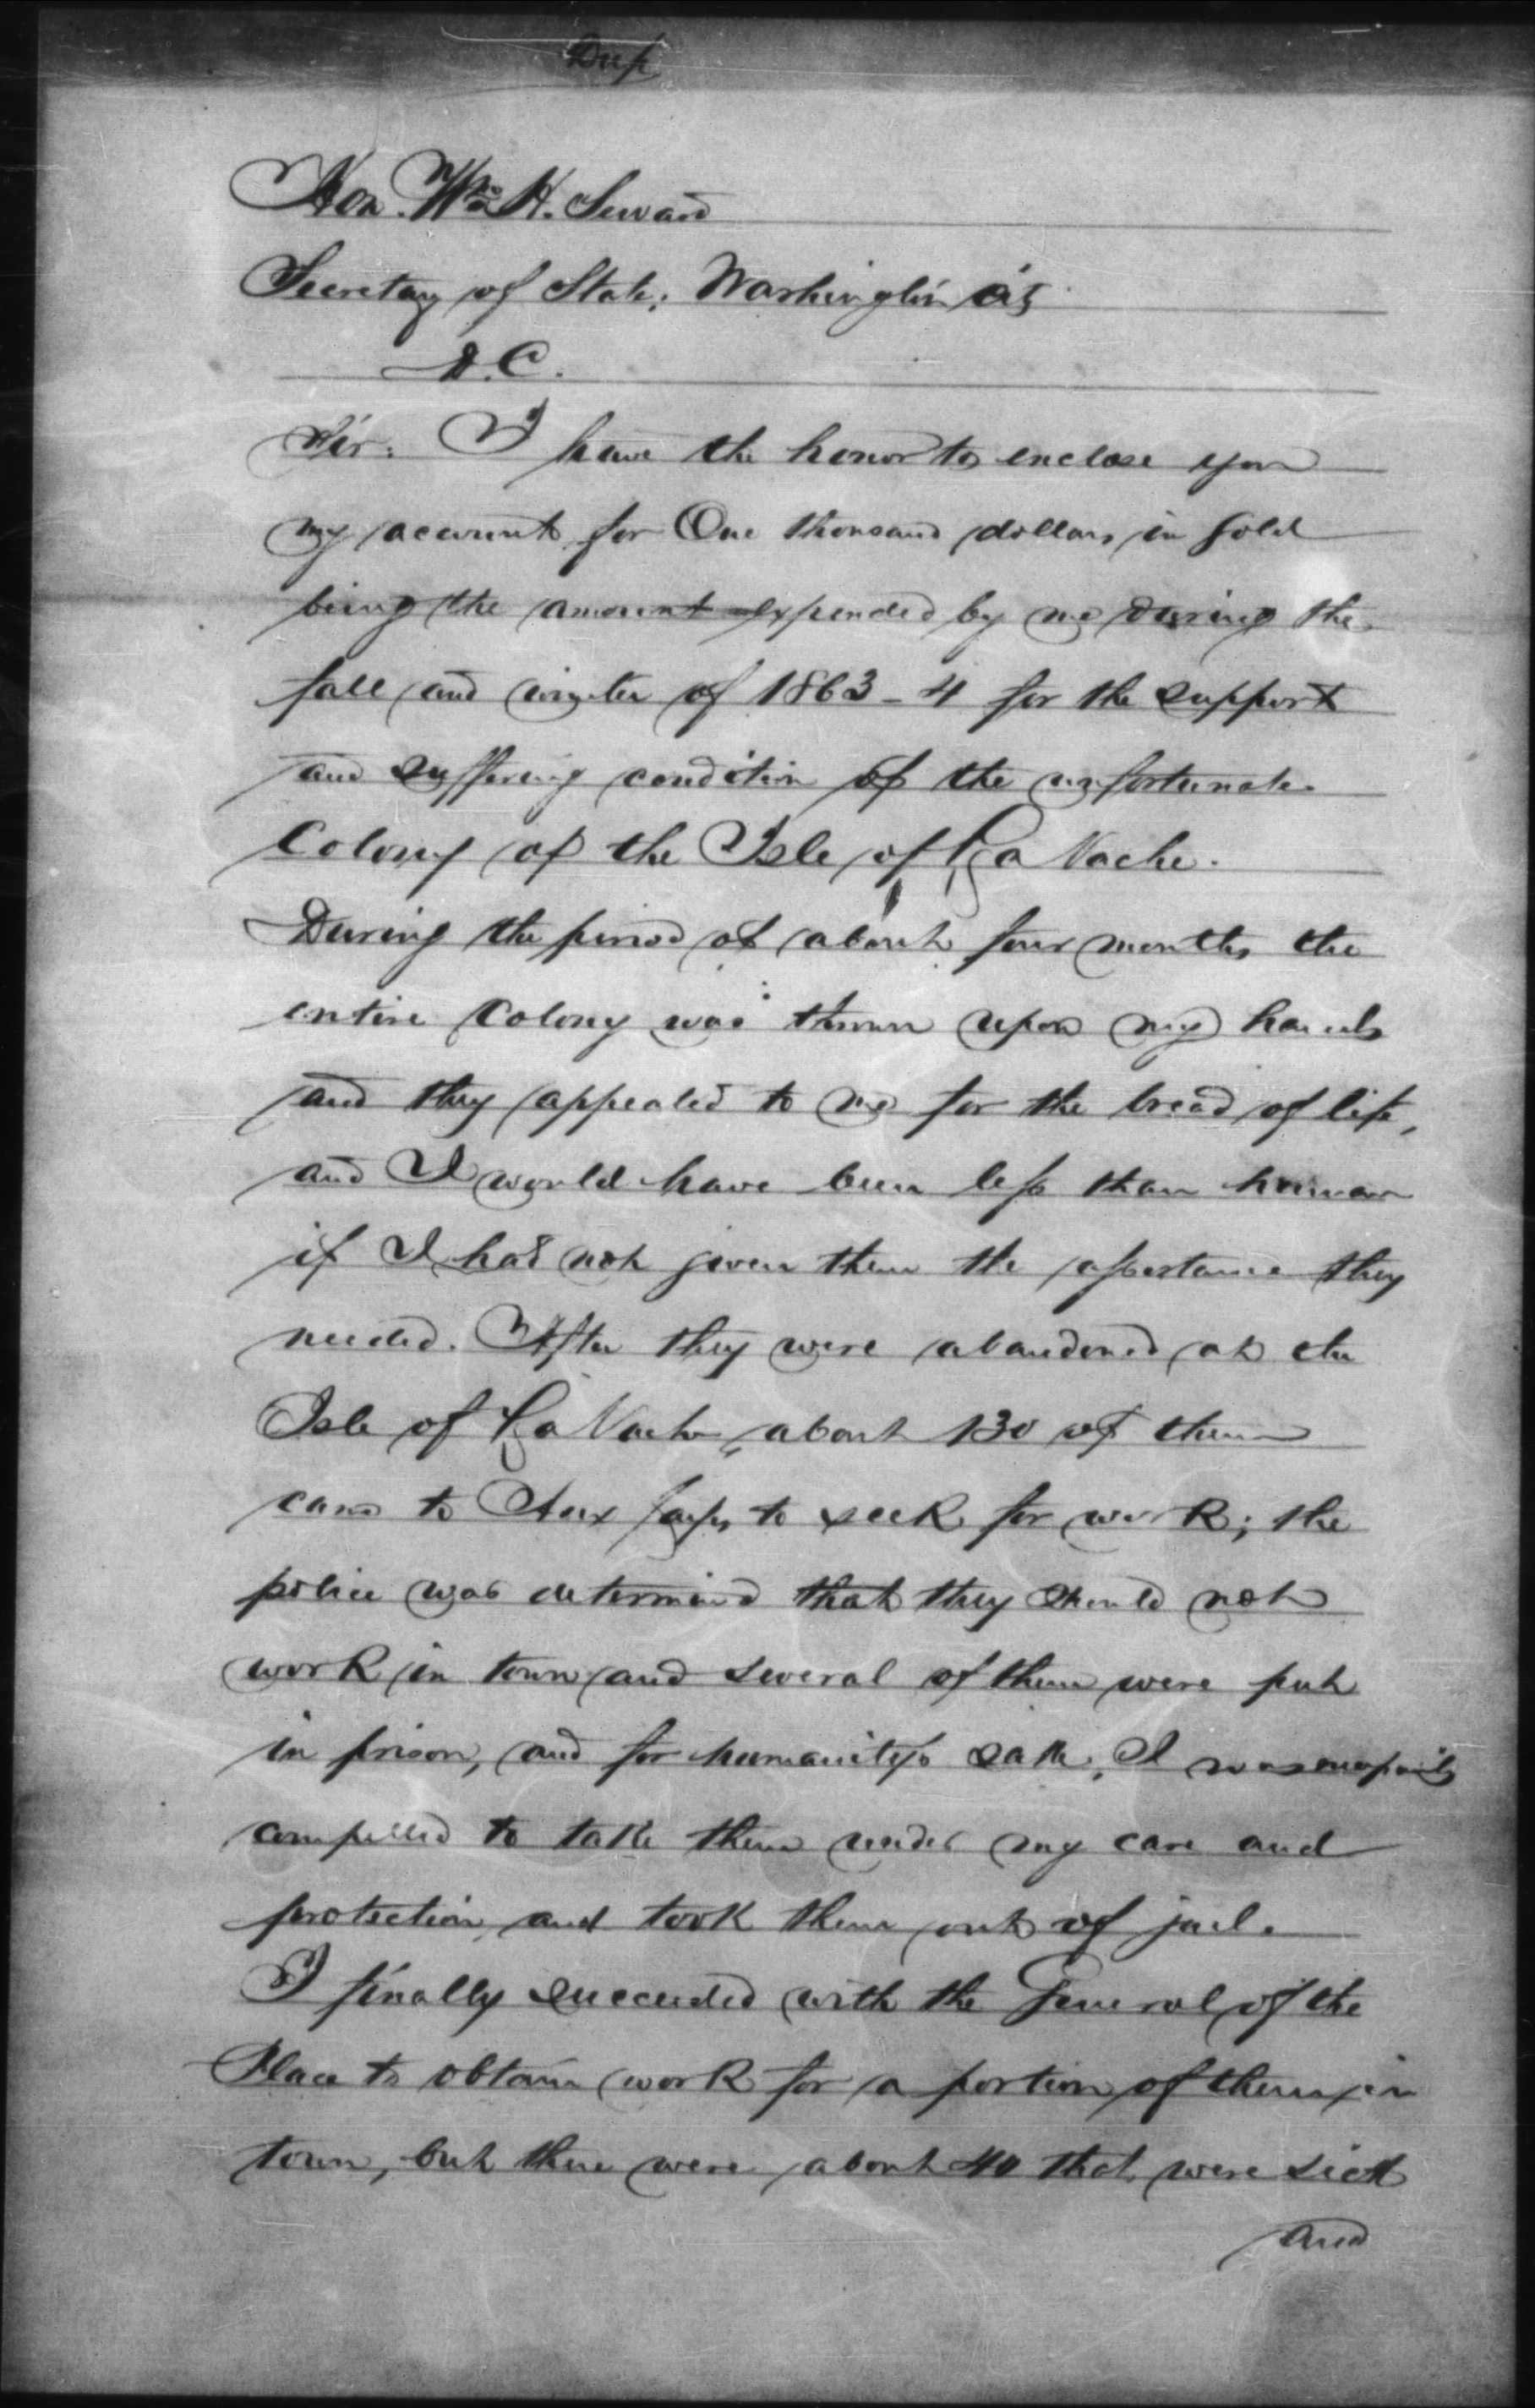 Dup
Hon. Wm H. Seward
Secretary of State, Washington City
D.C.
Sir: I have the honor to enclose you
my account for One thousand dollars in gold
being the amount expended by me during the
fall and winter of 1863-4 for the support
and suffering condition of the unfortunate
Colony of the Isle of La Vache.
During the period of about four months the
entire Colony was thrown upon my hands
and they appealed to me for the bread of life,
and I would have been less than human
if I had not given them the assistance they
needed. After they were abandoned at the
Isle of La Vache, about 130 of them
came to Aux Cayes to seek for work; the
police was determined that they should not
work in town and several of them were put
in prison, and for humanity's sake, I was
compelled to take them under my care and
protection and took them out of jail.
I finally succeeded with the General of the
Place to obtain work for a portion of them in
town, but there were about 40 that were sick
and